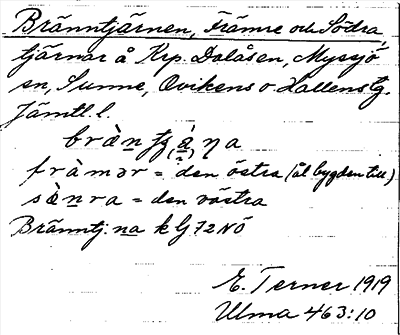 Bränntjärnen, Främre och Södra,
tjärnar å Krp. Dalåsen, Myssjö
sn, Sunne, Ovikens o Hallens tg.
Jämtl. l.
fràmər = den östra (åt bygden till)
sø̀nra = den västra
Bränntj:na k bj 72 NÖ
E. Terner 1919
Ulma 463:10